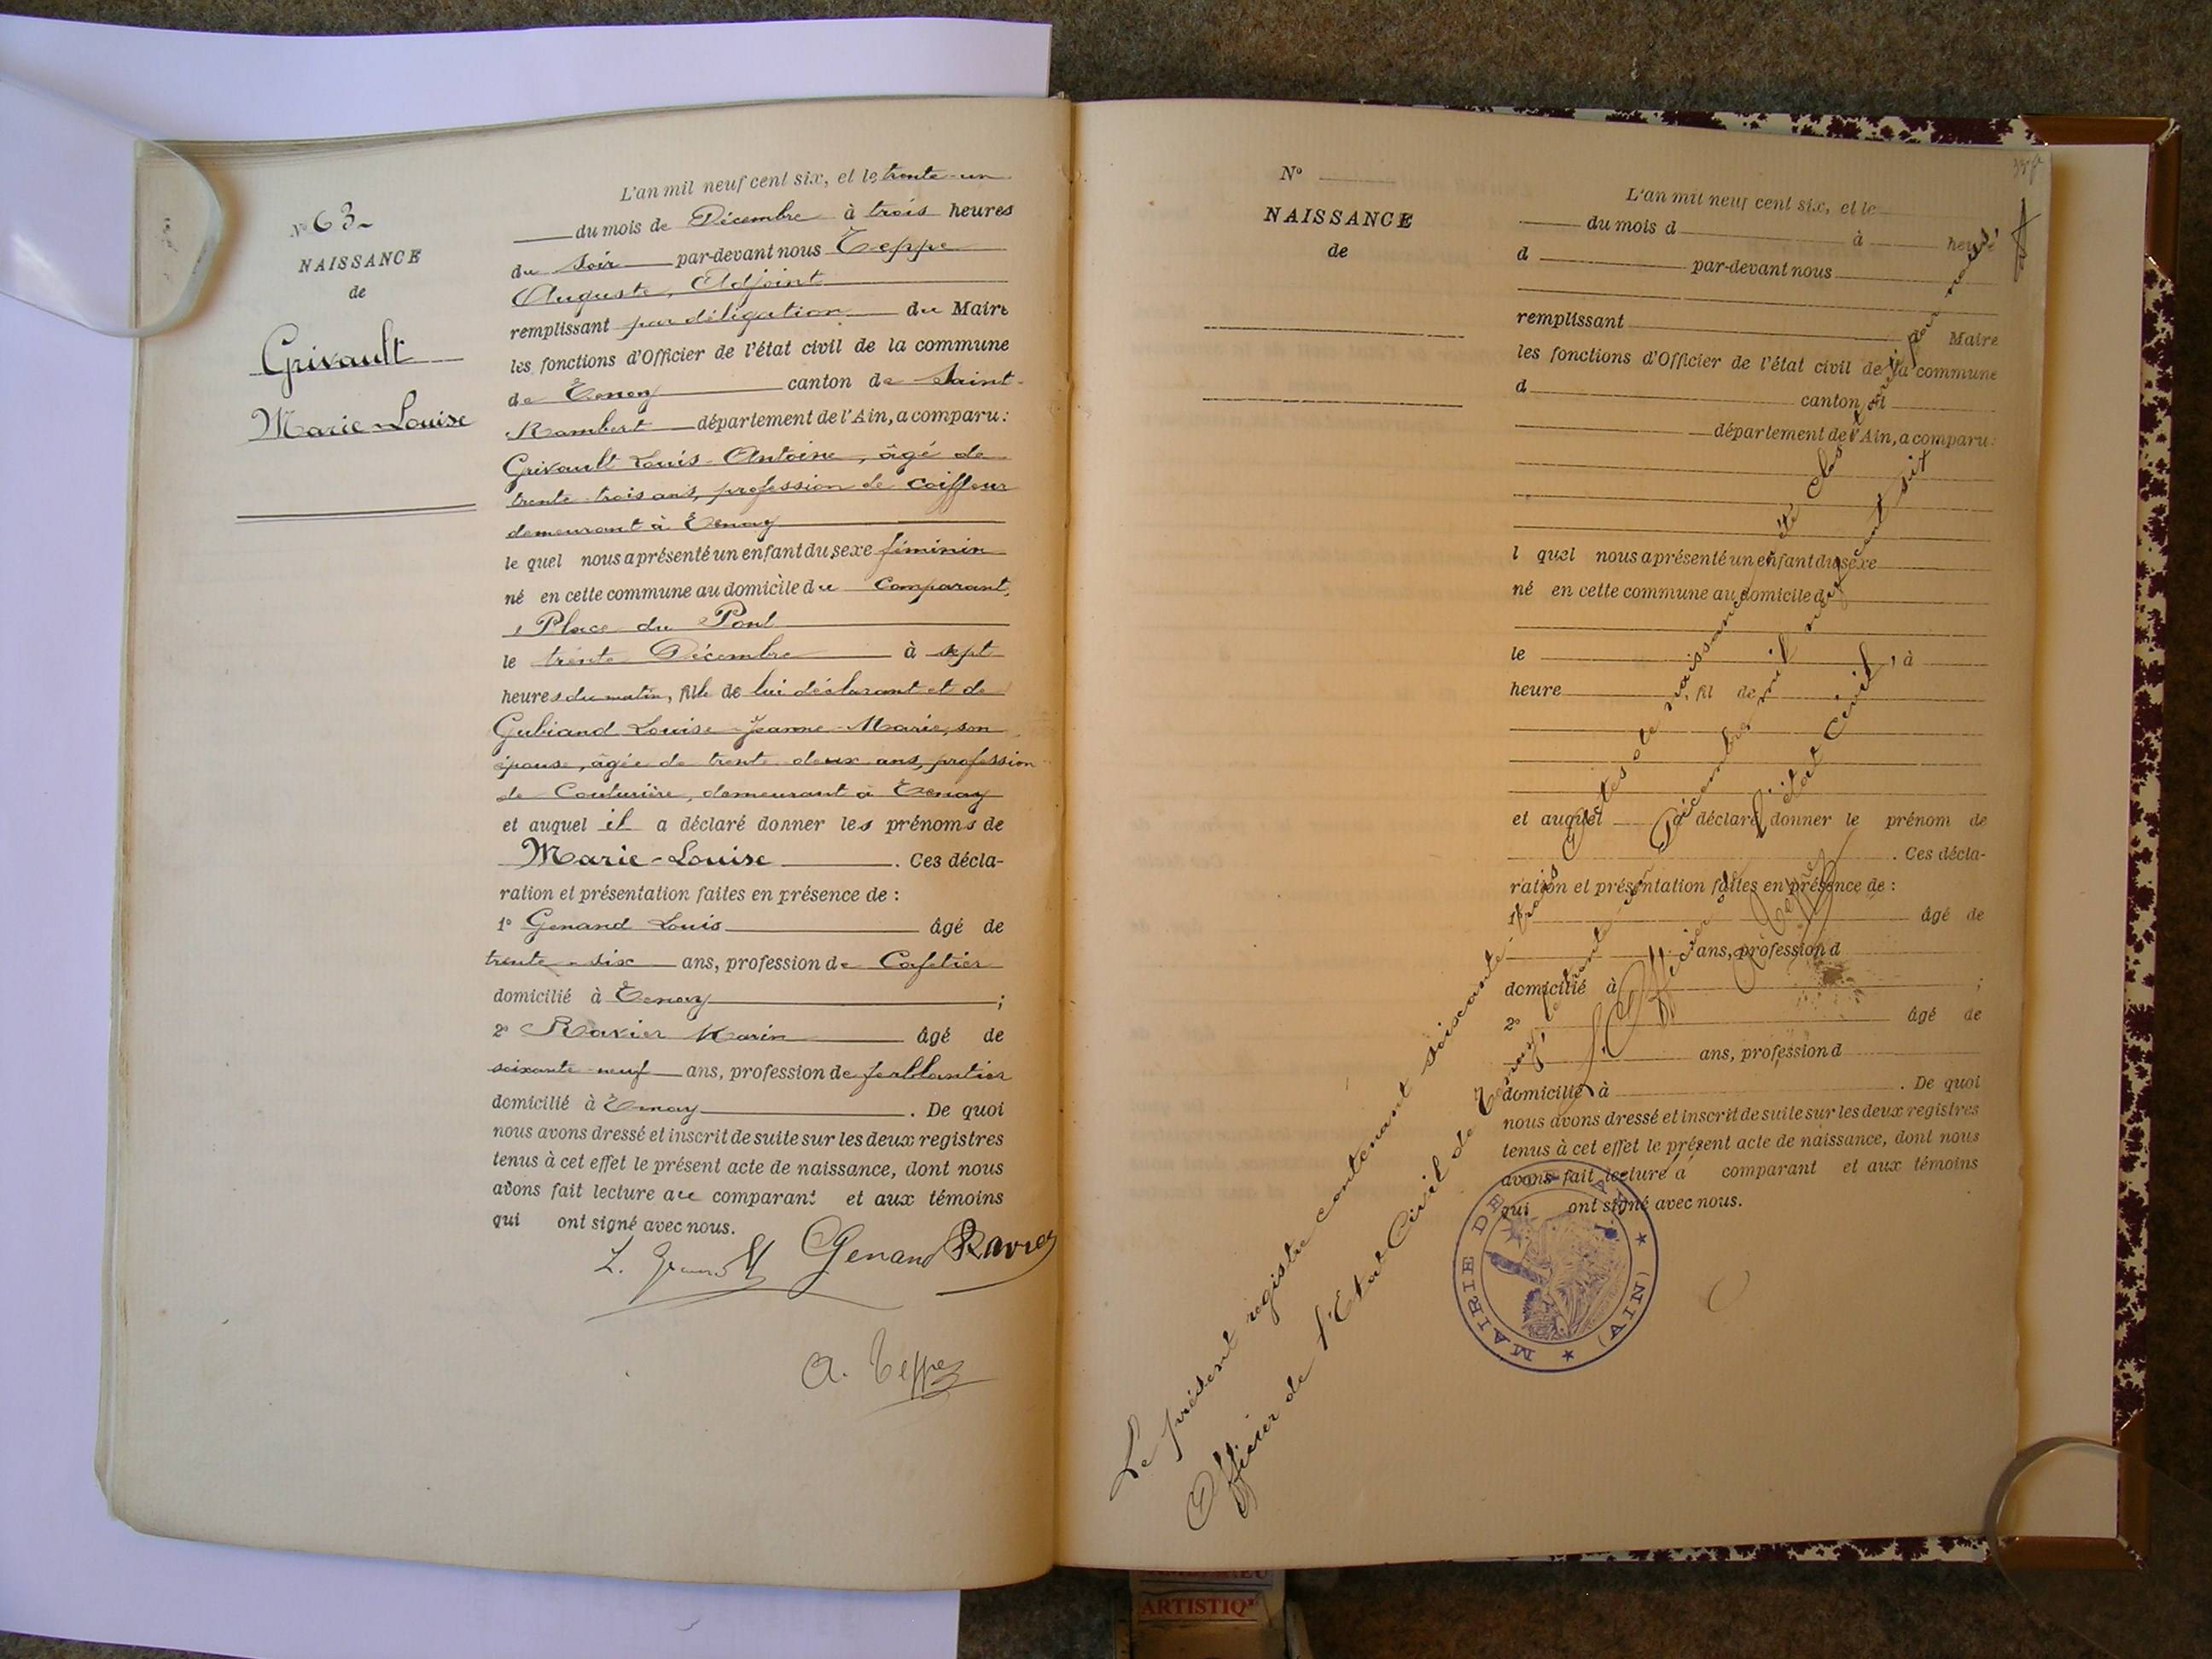 N° 63
NAISSANCE
de
Grivault
Marie-Louise
L'an mil neuf cent six, et le trente-un
du mois de Décembre à trois heures
du soir par-devant nous Teppe
Auguste, Adjoint
remplissant par délégation du Maire
les fonctions d'Officier de l'état civil de la commune
de Tenay canton de Saint-
Rambert département de l'Ain, a comparu :
Grivault Louis-Antoine, âgé de
trente-trois ans, profession de coiffeur
demeurant à Tenay
le quel nous a présenté un enfant du sexe féminin
né en cette commune au domicile du comparant,
Place du Pont
le trente Décembre à sept
heures du matin, fille de lui déclarant et de
Gubiand Louise-Jeanne-Marie, son
épouse, âgée de trente-deux ans, profession
de Couturière, demeurant à Tenay
et auquel il a déclaré donner les prénoms de
Marie-Louise. Ces décla-
ration et présentation faites en présence de :
1° Genand Louis âgé de
trente-six ans, profession de Cafetier
domicilié à Tenay ;
2° Ravier Marin âgé de
soixante-neuf ans, profession de ferblantier
domicilié à Tenay. De quoi
nous avons dressé et inscrit de suite sur les deux registres
tenus à cet effet le présent acte de naissance, dont nous
avons fait lecture au comparant et aux témoins
qui ont signé avec nous.
L. Grivault Genand Ravier
A. Teppe
N°
NAISSANCE
de
L'an mil neuf cent six, et le
du mois d à heure
d par-devant nous
remplissant Maire
les fonctions d'Officier de l'état civil de la commune
d canton d
département de l'Ain, a comparu :
l quel nous a présenté un enfant du sexe
né en cette commune au domicile d
le , à
heure , fil de
et auquel a déclaré donner le prénom de
. Ces décla-
ration et présentation faites en présence de :
1° âgé de
ans, profession d
domicilié à ;
2° âgé de
ans, profession d
domicilié à . De quoi
nous avons dressé et inscrit de suite sur les deux registres
tenus à cet effet le présent acte de naissance, dont nous
avons fait lecture à comparant et aux témoins
qui ont signé avec nous.
Le présent registre contenant soixante-trois actes de naissance a été clos et arrêté par nous
Officier de l'Etat Civil de Tenay, le trente-un Décembre mil neuf cent six
L'Officier de l'état Civil,
A. Teppe
MAIRIE DE TENAY
(AIN)
ARTISTIQ